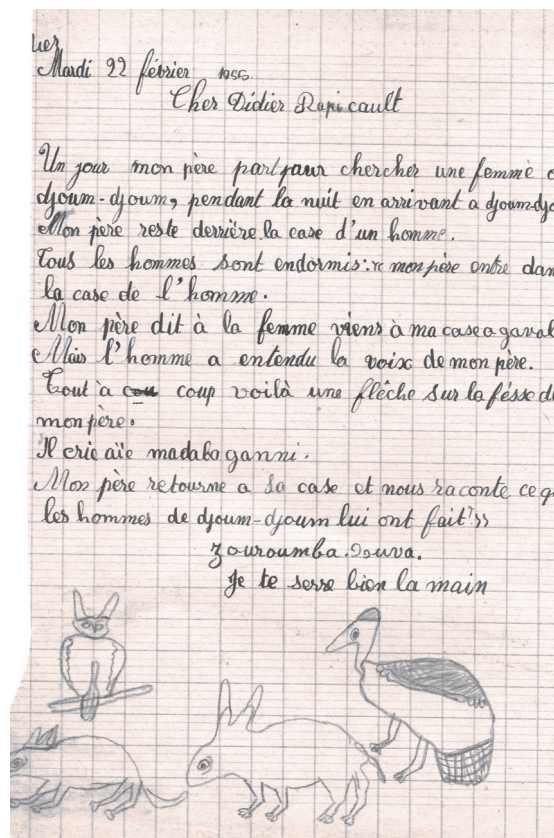 Mardi 22 février 1955.
Cher Didier Rapicault
Un jour mon père part pour chercher une femme
djoum-djoum, pendant la nuit en arrivant a
Mon père reste derrière la case d'un homme.
Tous les hommes sont endormis: « mon père entre
la case de l'homme.
Mon père dit à la femme viens à ma case a
Mais l'homme a entendu la voix de mon père.
Tout à cou coup voilà une flêche sur la fésse
mon père.
Il crie aïe madaba ganni.
Mon père retourne a sa case et nous raconte ce
les hommes de djoum-djoum lui ont fait! »
zouroumba.Douva.
Je te serre bien la main